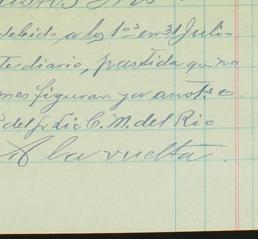 debido a los 1os en 31 Juli-
te diario, partida que no
nes figuran ya anots. es
del Sr Lic C. M. del Rio
A la vuelta.